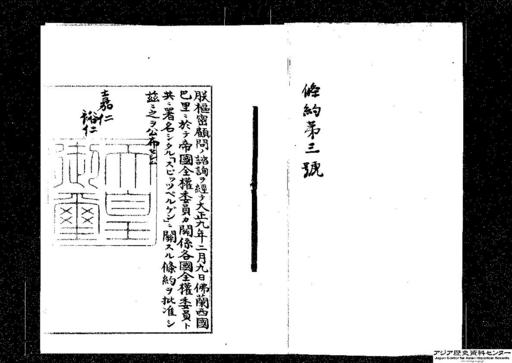 條約第三號
朕樞密顧問ノ諮詢ヲ經テ大正九年二月九日佛蘭西國
巴里ニ於テ帝國全權委員カ關係各國全權委員ト
共ニ署名シタル「スピッツベルゲン」ニ關スル條約ヲ批准シ
茲ニ之ヲ公布セシム
嘉仁
裕仁
天皇御璽
アジア歴史資料センター
Japan Center for Asian Historical Records